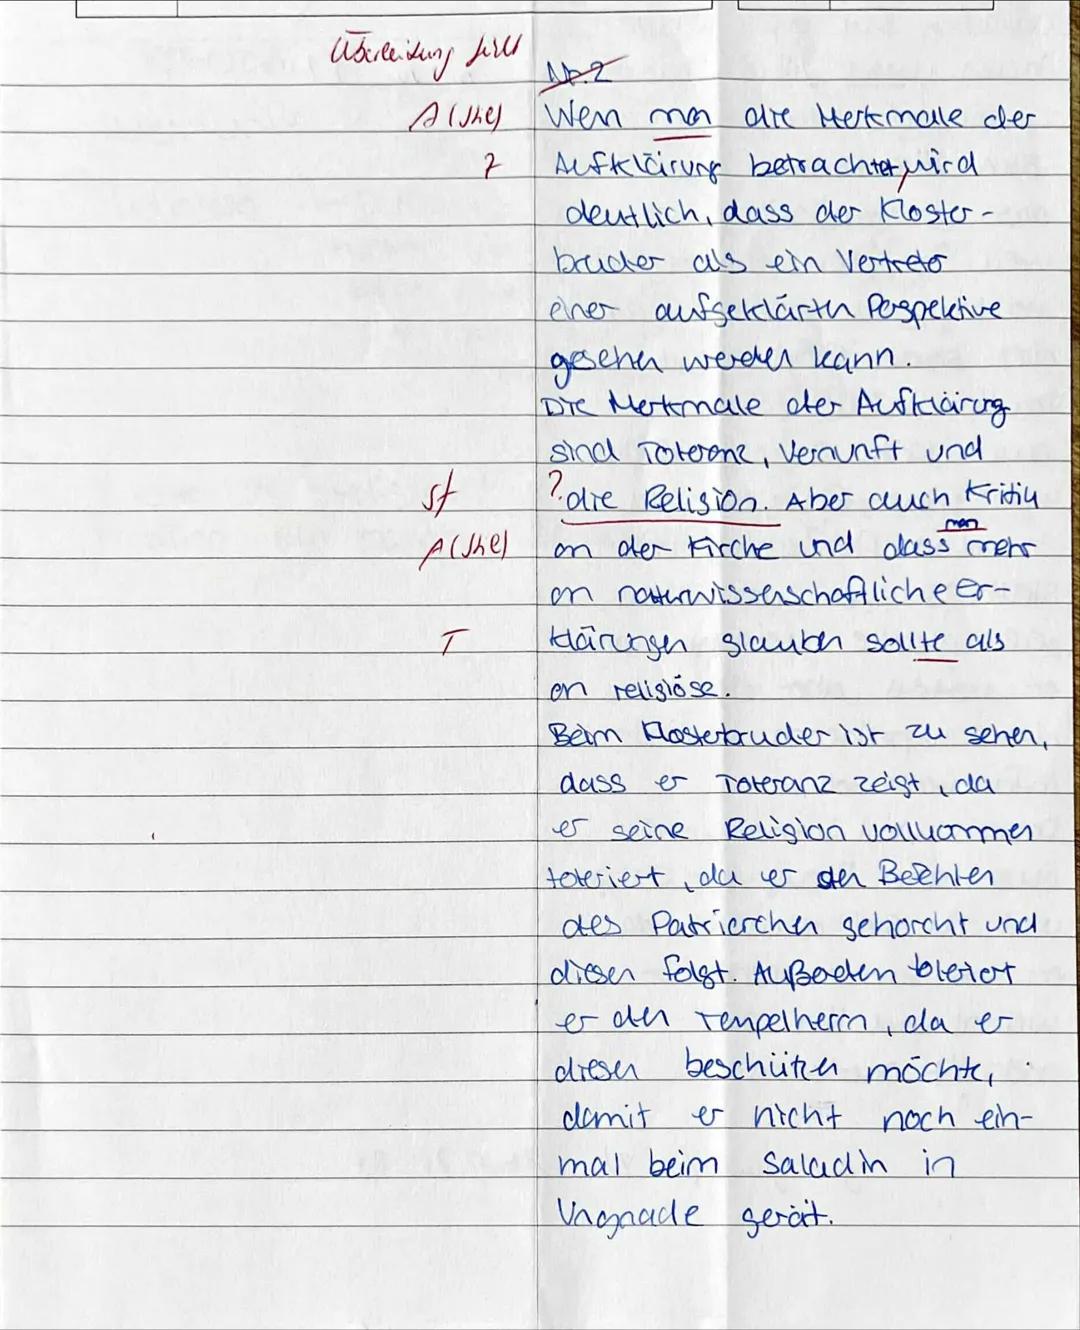 Überleitung fehlt
Nr. 2
A (s.he) Wenn man die Merkmale der
? Aufklärung betrachtet, wird
deutlich, dass der Kloster-
bruder als ein Vertreter
einer aufgeklärten Perspektive
gesehen werden kann.
Die Merkmale der Aufklärung
sind Toleranz, Vernunft und
St ? die Religion. Aber auch Kritik
man
A (s.he) an der Kirche und dass mehr
an naturwissenschaftliche Er-
T klärungen glauben sollte als
an religiöse.
Beim Klosterbruder ist zu sehen,
dass er Toleranz zeigt, da
er seine Religion vollkommen
toleriert, da er den Befehlen
des Patriarchen gehorcht und
diesen folgt. Außerdem
er den Tempelherrn, da er
diesen beschützen möchte,
damit er nicht noch ein-
mal beim Saladin in
Ungnade gerät.